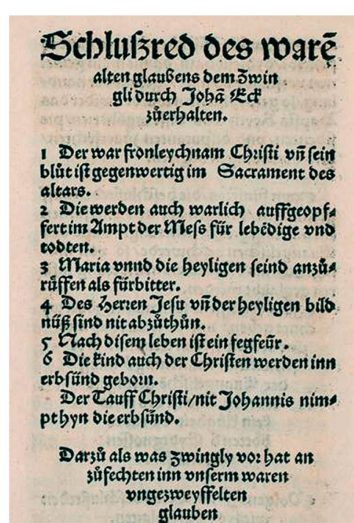 Schlußred des warē
alten glaubens dem Zwin
gli durch Johā Eck
zůerhalten.
1 Der war fronleychnam Christi vn̄ sein
blůt ist gegenwertig im Sacrament des
altars.
2 Die werden auch warlich auffgeopf⸗
fert im Ampt der Mess für lebēdige vnd
todten.
3 Maria vnnd die heyligen seind anzů⸗
rüffen als fürbitter.
4 Des Herren Jesu vn̄ der heyligen bild
nüß sind nit abzůthůn.
5 Nach disem leben ist ein fegfeür.
6 Die kind auch der Christen werden inn
erbsünd geborn.
Der Tauff Christi/nit Johannis nim⸗
pt hyn die erbsünd.
Darzů als was Zwingly vor hat an
zůfechten inn vnserm waren
vngezweyffelten
glauben